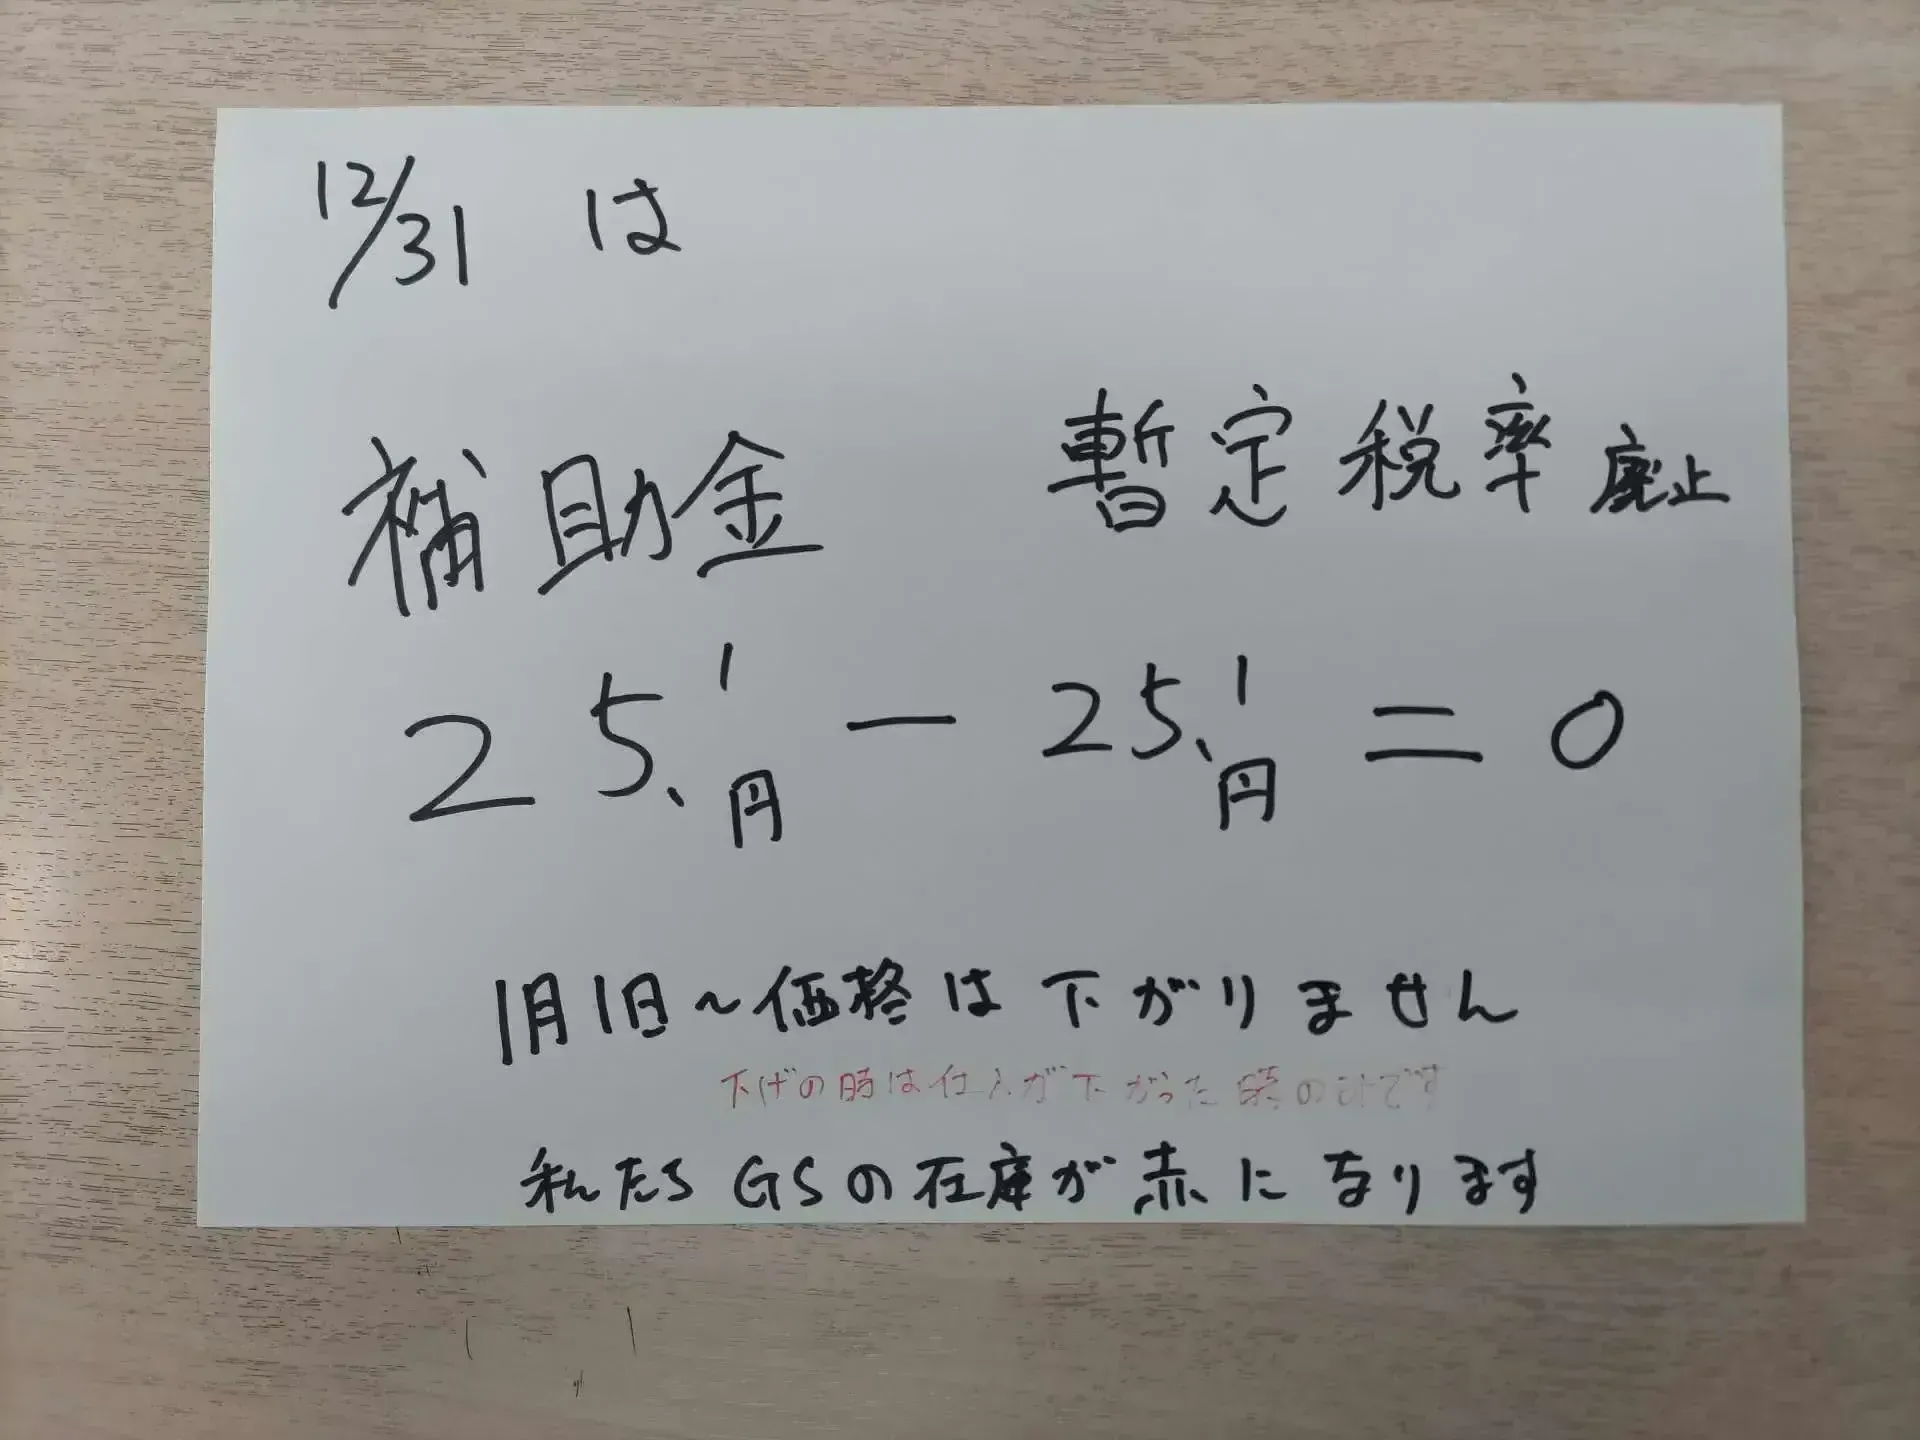 12/31 は
補助金 暫定税率廃止
25.1円 − 25.1円 = 0
1月1日〜価格は下がりません
下げの時は仕入が下がった時のみです
私たちGSの在庫が赤になります